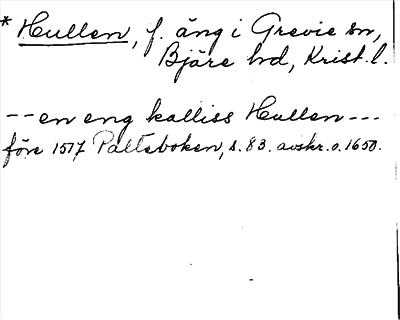 * Hullen, f. äng i Grevie sn,
Bjäre hd, Krist. l.
-- en eng kalliss Hullen ---
före 1517 Paltsboken, s. 83. avskr. o. 1650.